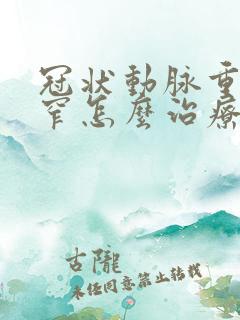 冠狀動脈重
窄怎麼治療
古隴
未任同意禁止轉載